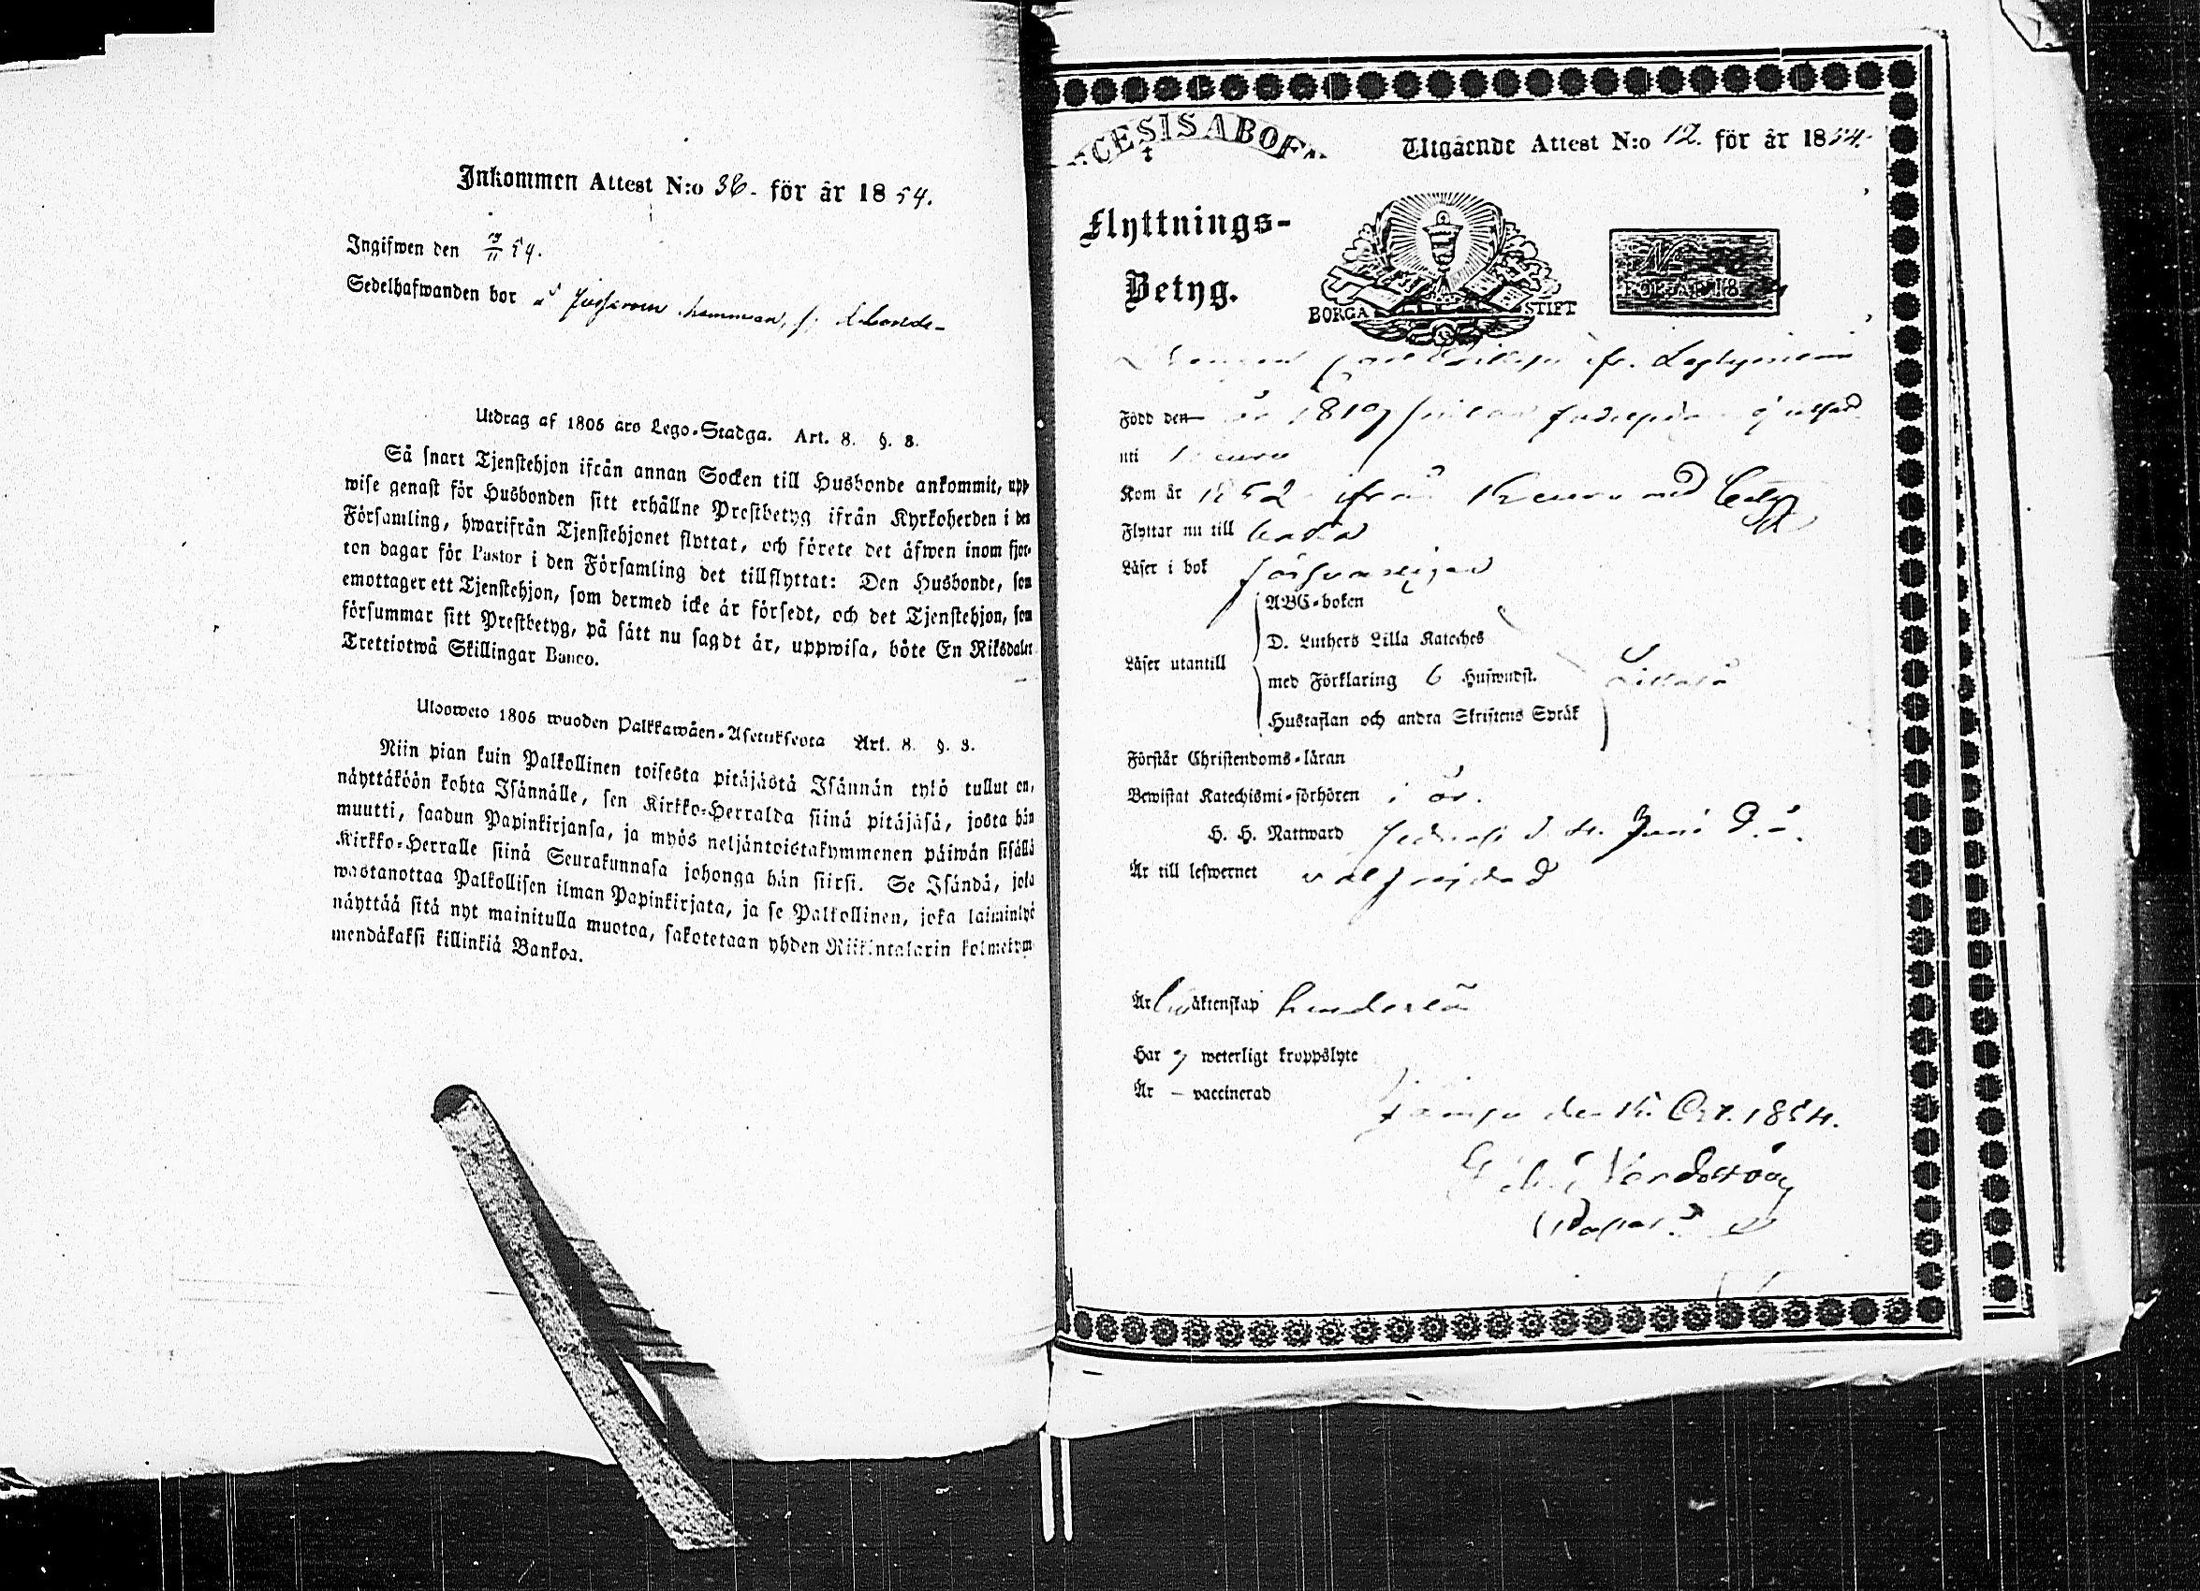 Inkommen Attest N:o 36. för år 1854.
Ingifwen den 19/11 54.
Sedelhafwanden bor
Utdrag af 1805 års Lego-Stadga. Art. 8. §. 8.
Så snart Tjenstehjon ifrån annan Socken till Husbonde ankommit, upp-
wise genast för Husbonden sitt erhållne Prestbetyg ifrån Kyrkoherden i den
Församling, hwarifrån Tjenstehjonet flyttat, och förete det äfwen inom fjor-
ton dagar för Pastor i den Församling det tillflyttat: Den Husbonde, som
emottager ett Tjenstehjon, som dermed icke är försedt, och det Tjenstehjon, som
försummar sitt Prestbetyg, på sätt nu sagdt är, uppwisa, böte En Riksdaler
Trettiotwå Skillingar Banco.
Ulosweto 1805 wuoden Palkkawäen-Asetuksesta Art. 8. §. 8.
Niin pian kuin Palkollinen toisesta pitäjästä Isännän työ tullut on,
näyttäköön kohta Isännälle, sen Kirkko-Herralda siinä pitäjäsä, josta hän
muutti, saadun Papinkirjansa, ja myös neljäntoistakymmenen päiwän sisällä
Kirkko-Herralle siinä Seurakunnasa johonga hän siirsi. Se Isändä, joka
wastanottaa Palkollisen ilman Papinkirjata, ja se Palkollinen, joka laiminlyö
näyttää sitä nyt mainitulla muotoa, sakotetaan yhden Riikintalarin kolmekym-
mendäkaksi killinkiä Bankoa.
CESIS ABOEN
Utgående Attest N:o 12. för år 1854.
Flyttnings-
Betyg.
BORGA STIFT
N:o
FÖR ÅR 18
ifr.
Född den år 1819
uti
Kom år 1852 ifrån Keuru med betyg
Flyttar nu till
Läser i bok försvarligen
ABC-boken
D. Luthers Lilla Kateches
Läser utantill
med Förklaring 6 Hufwudst.
Hustaflan och andra Skriftens Språk
Förstår Christendoms-läran
Bewistat Katechismi-förhören i år.
H. H. Nattward senast d. Juni d. å.
Är till lefwernet välfrejdad
Är till äktenskap hinderlös
Har ej weterligt kroppslyte
Är – vaccinerad
Jämsä den 15 Oct. 1854.
Nordström